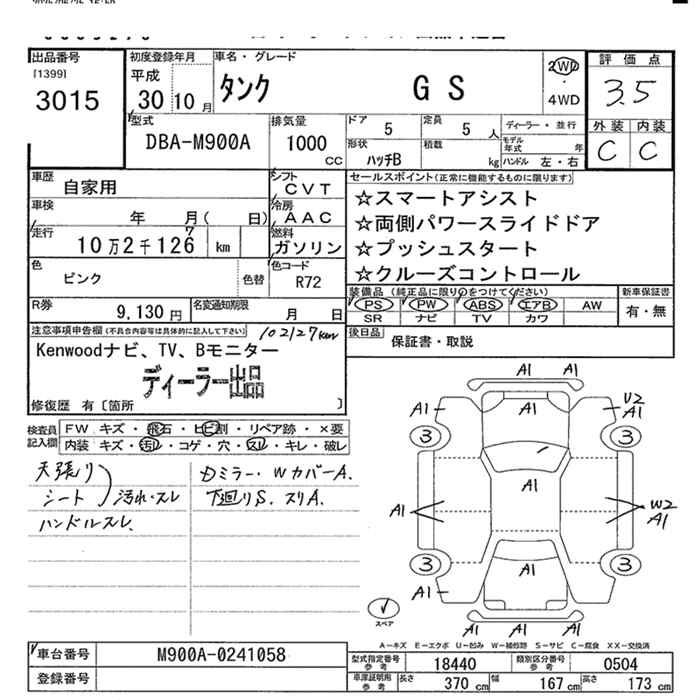 出品番号
[1399]
3015
初度登録年月
平成
30 10 月
車名・グレード
タンク GS
2WD
・
4WD
評価点
3.5
外装 内装
C C
型式
DBA-M900A
排気量
1000
CC
ドア
5
定員
5 人
ディーラー・並行
形状
ハッチB
積載
kg
モデル年式 年
ハンドル 左・右
車歴
自家用
シフト
CVT
車検
年 月( 日)
冷房
AAC
走行
10万2千126 km
7
燃料
ガソリン
色
ピンク
色替
色コード
R72
R券
9,130 円
名変通知期限
月 日
セールスポイント(正常に機能するものに限ります)
☆スマートアシスト
☆両側パワースライドドア
☆プッシュスタート
☆クルーズコントロール
装備品(純正品に限り○をつけてください)
PS PW ABS エアB AW
SR ナビ TV カワ
新車保証書
有・無
後日品
保証書・取説
注意事項申告欄(不具合内容等は具体的に記入して下さい)
102127km
Kenwoodナビ、TV、Bモニター
ディーラー出品
修復歴 有〔箇所 〕
検査員記入欄
FW キズ・飛石・ヒビ割・リペア跡・×要
内装 キズ・汚れ・コゲ・穴・スレ・キレ・破レ
天張り
シート 汚れ・スレ
ハンドルスレ
Dミラー・WカバーA.
下廻りS. スリA.
A1 A1
A1 U2
A1
3 3
A1
A1
A1 W2
A1
3 3
A1
A1 A1
A1 A1
スペア
A-キズ E-エクボ U-凹み W-補修跡 S-サビ C-腐食 XX-交換済
車台番号
M900A-0241058
登録番号
型式指定番号
参考
18440
類別区分番号
参考
0504
車庫証明用
参考
長さ 370 cm 幅 167 cm 高さ 173 cm